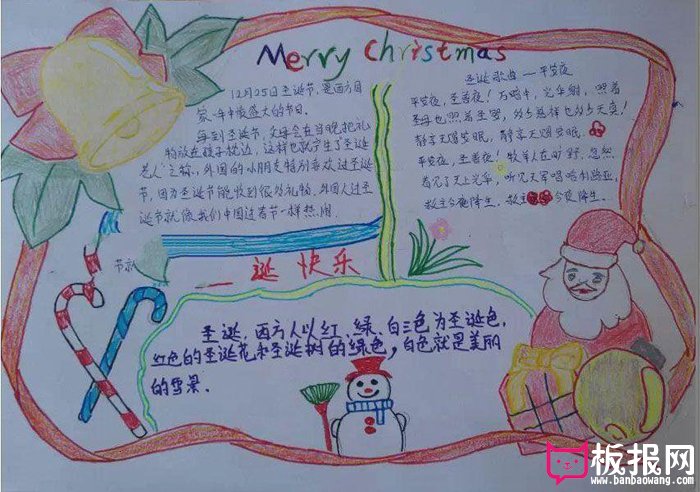 Merry Christmas
12月25日圣诞节，是西方国
家一年中最盛大的节日。
每到圣诞节，父母会在当晚把礼
物放在袜子枕边，这样也就产生了圣诞
老人之称，外国的小朋友特别喜欢过圣诞
节，因为圣诞节能收到很多礼物，外国人过圣
诞节就像我们中国过春节一样热闹
节就
圣诞歌曲——平安夜
平安夜，圣善夜！万暗中，光华射，照着
圣母也照着圣婴，多少慈祥也多少天真！
静享天赐安眠，静享天赐安眠。
平安夜，圣善夜！牧羊人在旷野，忽然
看见了天上光华，听见天军唱哈利路亚，
救主今夜降生，救主今夜降生。
诞快乐
圣诞，西方人以红、绿、白三色为圣诞色，
红色的圣诞花和圣诞树的绿色，白色就是美丽
的雪景。
板报网
www.banbaowang.com